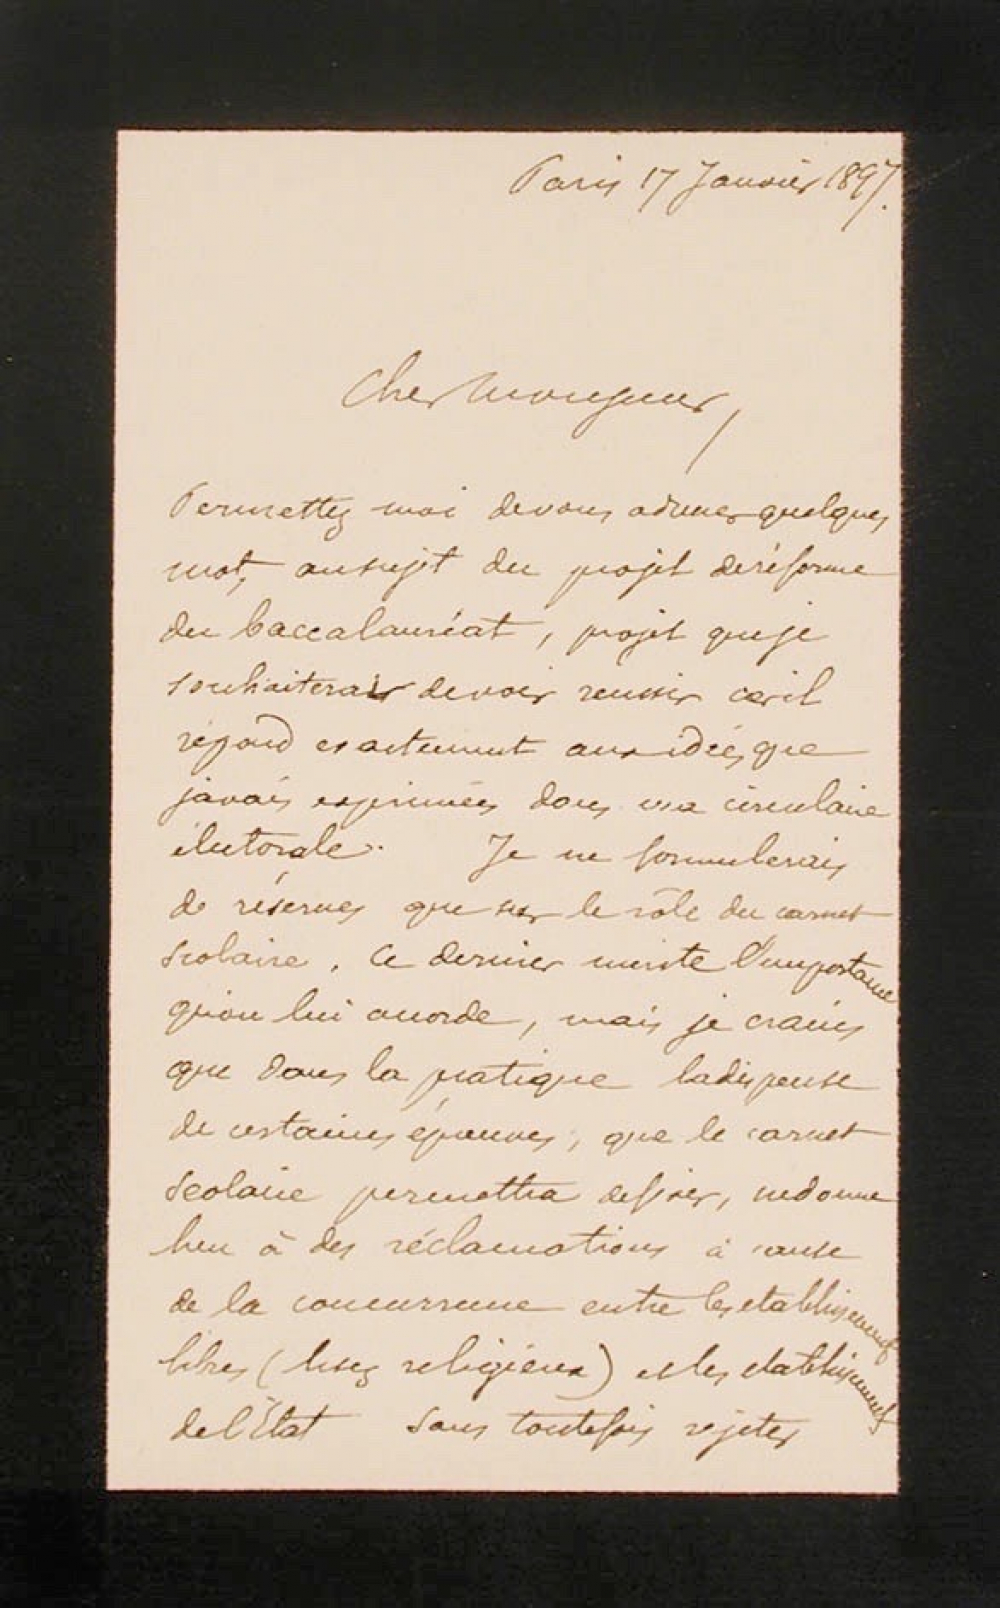 Paris 17 Janvier 1897.
Cher Monsieur,
Permettez moi de vous adresser quelques
mots au sujet du projet de réforme
du baccalauréat, projet que je
souhaiterais de voir reussir car il
répond exactement aux idées que
j'avais exprimées dans ma circulaire
électorale. Je ne formulerais
de réserves que sur le rôle du carnet
scolaire. Ce dernier mérite l'importance
qu'on lui accorde, mais je crains
que dans la pratique la dispense
de certaines épreuves, que le carnet
scolaire permettra , ne donne
lieu à des réclamations à cause
de la concurrence entre les etablissements
libres (lisez religieux) et les etablissements
de l'État Sans toutefois rejeter